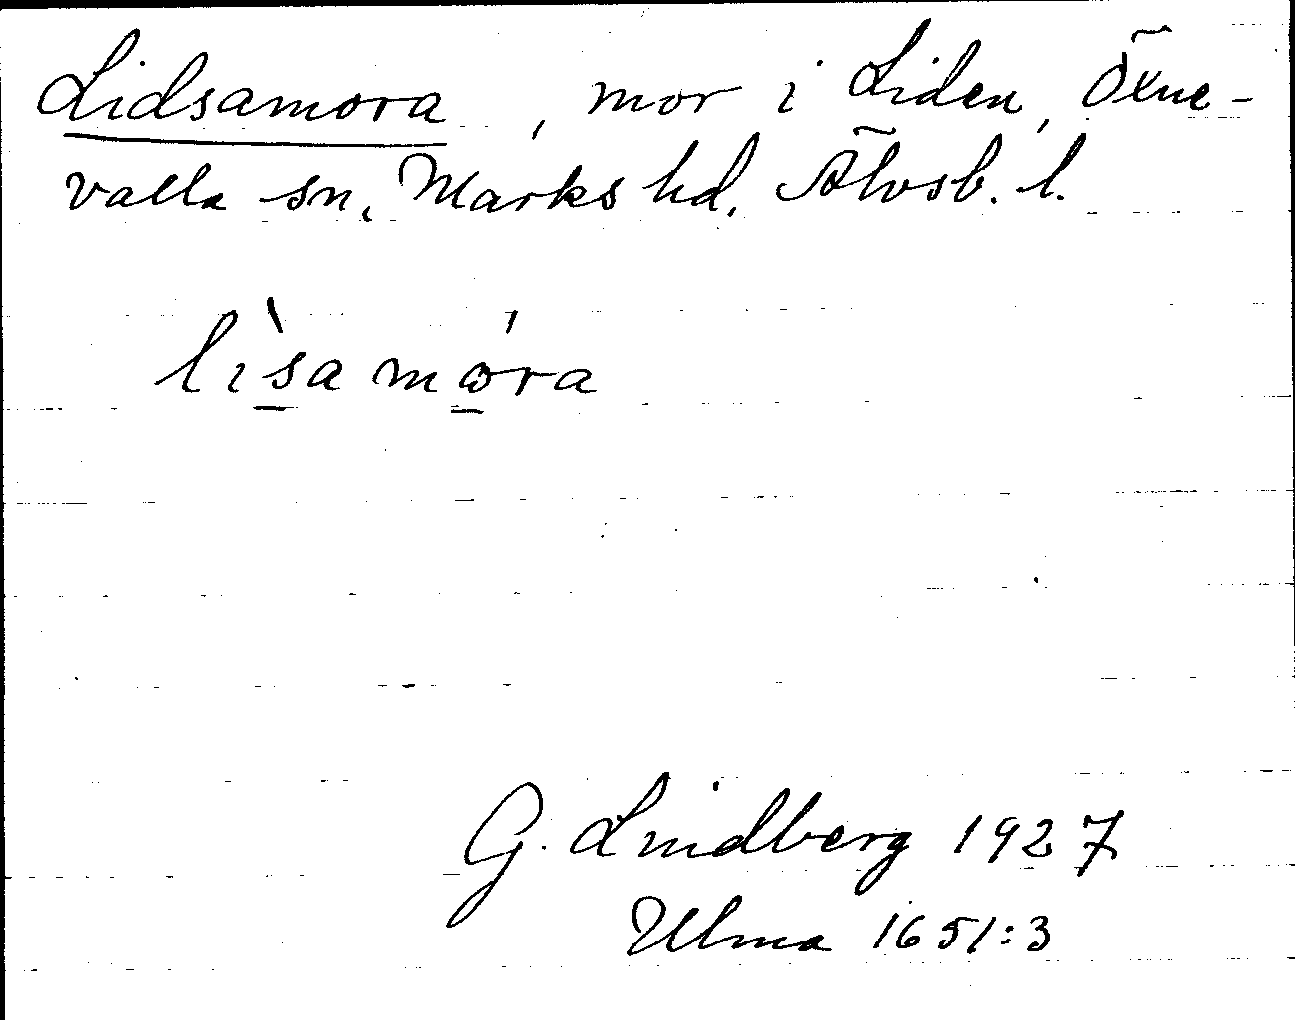 Lidsamora, mor i Liden, Öxne-
valla sn, Marks hd, Älvsb. l.
lìsamó̱ra
G. Lindberg 1927
Ulma 1651:3